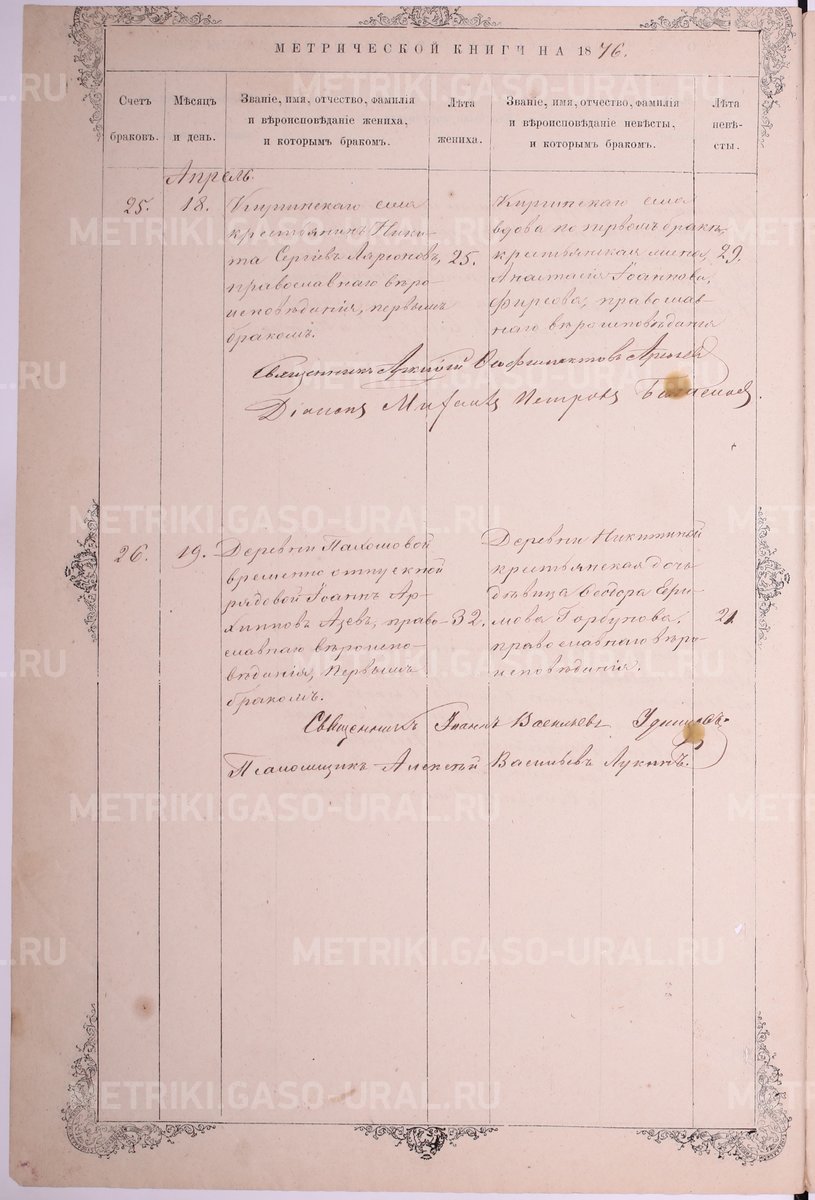 МЕТРИЧЕСКОЙ КНИГИ НА 1876.
Счетъ браковъ.
Мѣсяцъ и день.
Званіе, имя, отчество, фамилія и вѣроисповѣданіе жениха, и которымъ бракомъ.
Лѣта жениха.
Званіе, имя, отчество, фамилія и вѣроисповѣданіе невѣсты, и которымъ бракомъ.
Лѣта невѣсты.
Апрель.
25.
18.
Киргинскаго села
крестьянинъ Ники-
та Сергіевъ Ларіоновъ,
православнаго вѣро-
исповѣданія, первымъ
бракомъ.
25.
Киргинскаго села
вдова по первомъ бракѣ,
крестьянская жена,
Анастасія Іоаннова,
Фирсова, православ-
наго вѣроисповѣданія
29.
Священникъ
Діаконъ Петровъ
26.
19.
Деревни
временно отпускной
рядовой Іоаннъ Ар-
хиповъ право-
славнаго вѣроиспо-
вѣданія, первымъ
бракомъ.
32.
Деревни Никитиной
крестьянская дочь
дѣвица Ѳеодора Ефи-
мова Горбунова,
православнаго вѣро-
исповѣданія.
21
Священникъ Іоаннъ Васильевъ
Псаломщикъ Алексѣй Васильевъ Лукинъ.
METRIKI.GASO-URAL.RU